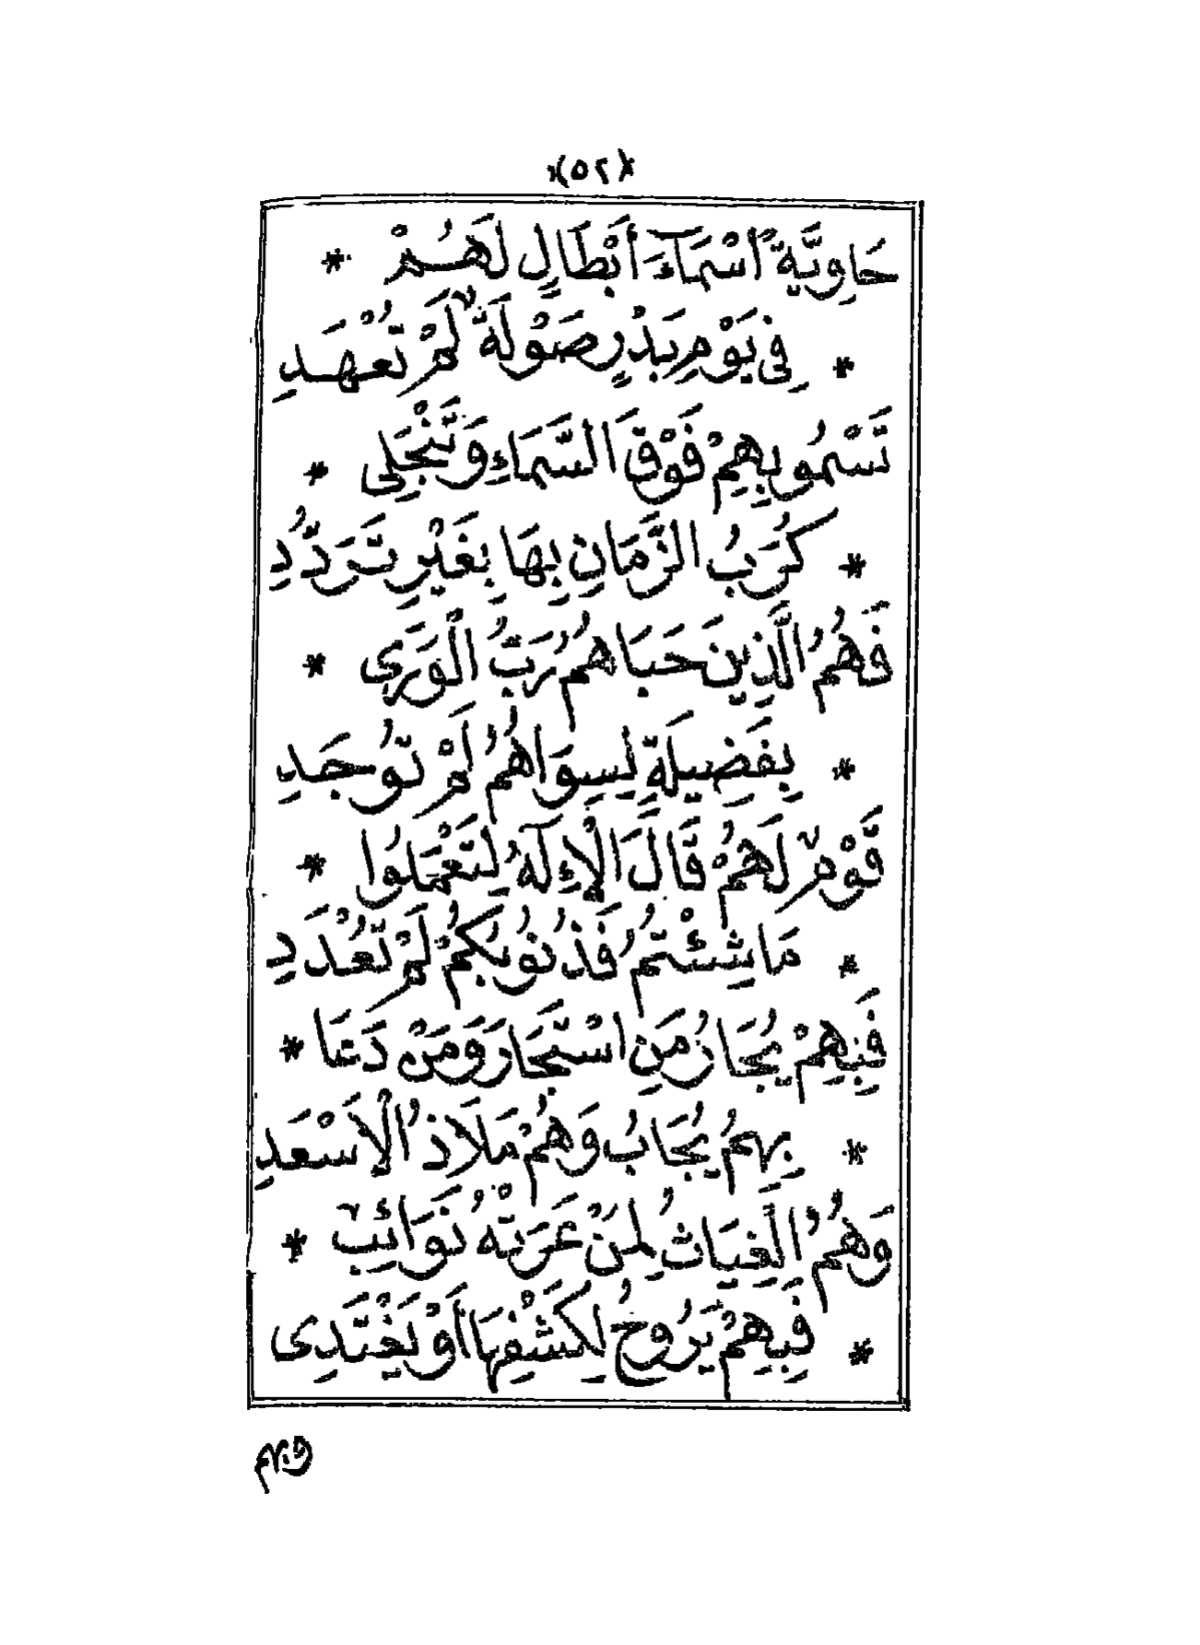 (٥٢)
حَاوِيَةٌ أَسْمَاءَ أَبْطَالٍ لَهُمْ *
* فِي يَوْمِ بَدْرٍ صَوْلَةٌ لَمْ تُعْهَدِ
تَسْمُو بِهِمْ فَوْقَ السَّمَاءِ وَتَنْجَلِي *
* كُرَبُ الزَّمَانِ بِهَا بِغَيْرِ تَرَدُّدِ
فَهُمُ الَّذِينَ حَبَاهُمُ رَبُّ الْوَرَى *
* بِفَضِيلَةٍ لِسِوَاهُمُ لَمْ تُوجَدِ
قَوْمٌ لَهُمْ قَالَ الْإِلَهُ لِتَعْمَلُوا *
* مَا شِئْتُمُ فَذُنُوبُكُمْ لَمْ تُعْدَدِ
فَبِهِمْ يُجَارُ مَنِ اسْتَجَارَ وَمَنْ دَعَا *
* بِهِمُ يُجَابُ وَهُمْ مَلَاذُ الْأَسْعَدِ
وَهُمُ الْغِيَاثُ لِمَنْ عَرَتْهُ نَوَائِبٌ *
* فَبِهِمْ يَرُوحُ لِكَشْفِهَا أَوْ يَغْتَدِي